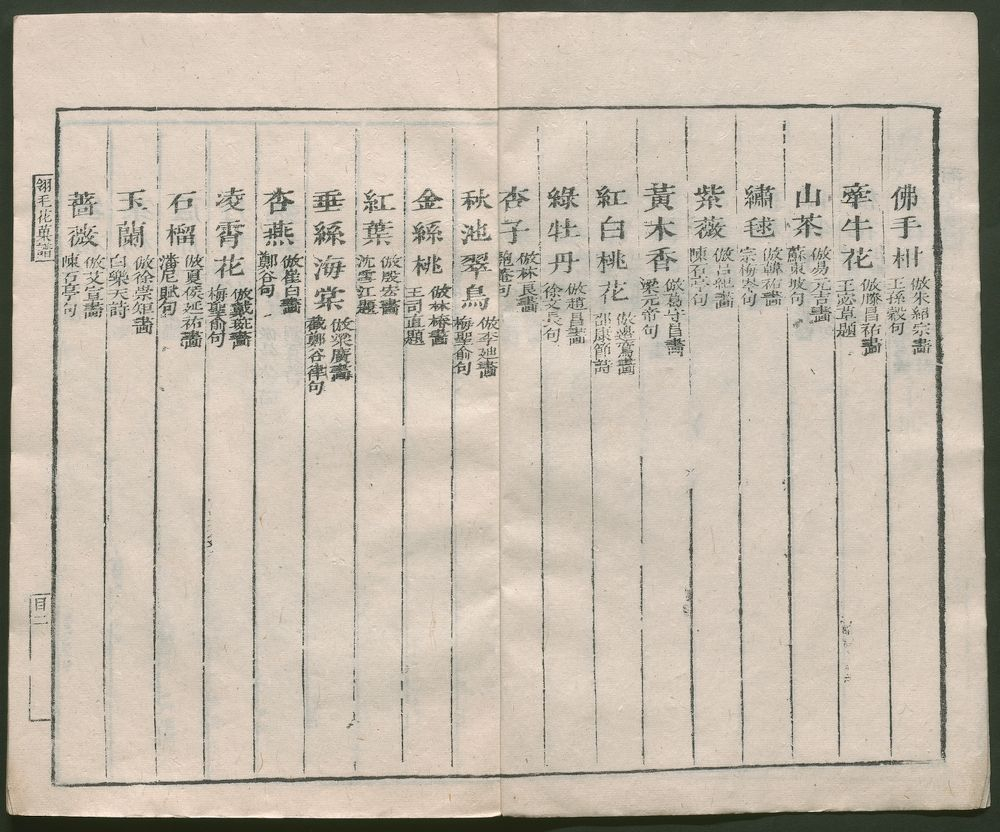 佛手柑 倣朱紹宗畫 王孫穀句
牽牛花 倣滕昌祐畫 王宓草題
山茶 倣易元吉畫 蘇東坡句
繡毬 倣韓祐畫 宗梅岑句
紫薇 倣呂紀畫 陳石亭句
黃木香 倣葛守昌畫 梁元帝句
紅白桃花 倣邊鸞畫 邵康節詩
綠牡丹 倣趙昌畫 徐文長句
杏子 倣林良畫 庵句
秋池翠鳥 倣李迪畫 梅聖俞句
金絲桃 倣林椿畫 王司直題
紅葉 倣殷宏畫 沈雪江題
垂絲海棠 倣梁廣畫 截鄭谷律句
杏燕 倣崔白畫 鄭谷句
凌霄花 倣戴琬畫 梅聖俞句
石榴 倣夏侯延祐畫 潘尼賦句
玉蘭 倣徐崇矩畫 白樂天詩
薔薇 倣艾宣畫 陳石亭句
翎毛花菓譜
目二